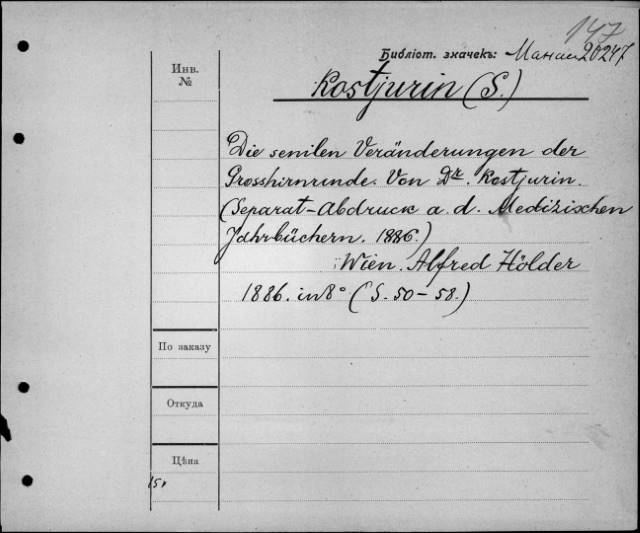 147
Библіот. значекъ: Манас 20247
Инв.
№
Kostjurin (S.)
Die senilen Veränderungen der
Grosshirnrinde. Von Dr. Kostjurin.
(Separat-Abdruck a. d. Medizischen
Jahrbüchern. 1886.)
Wien. Alfred Hölder
1886. in 8° (S. 50-58.)
По заказу
Откуда
Цѣна